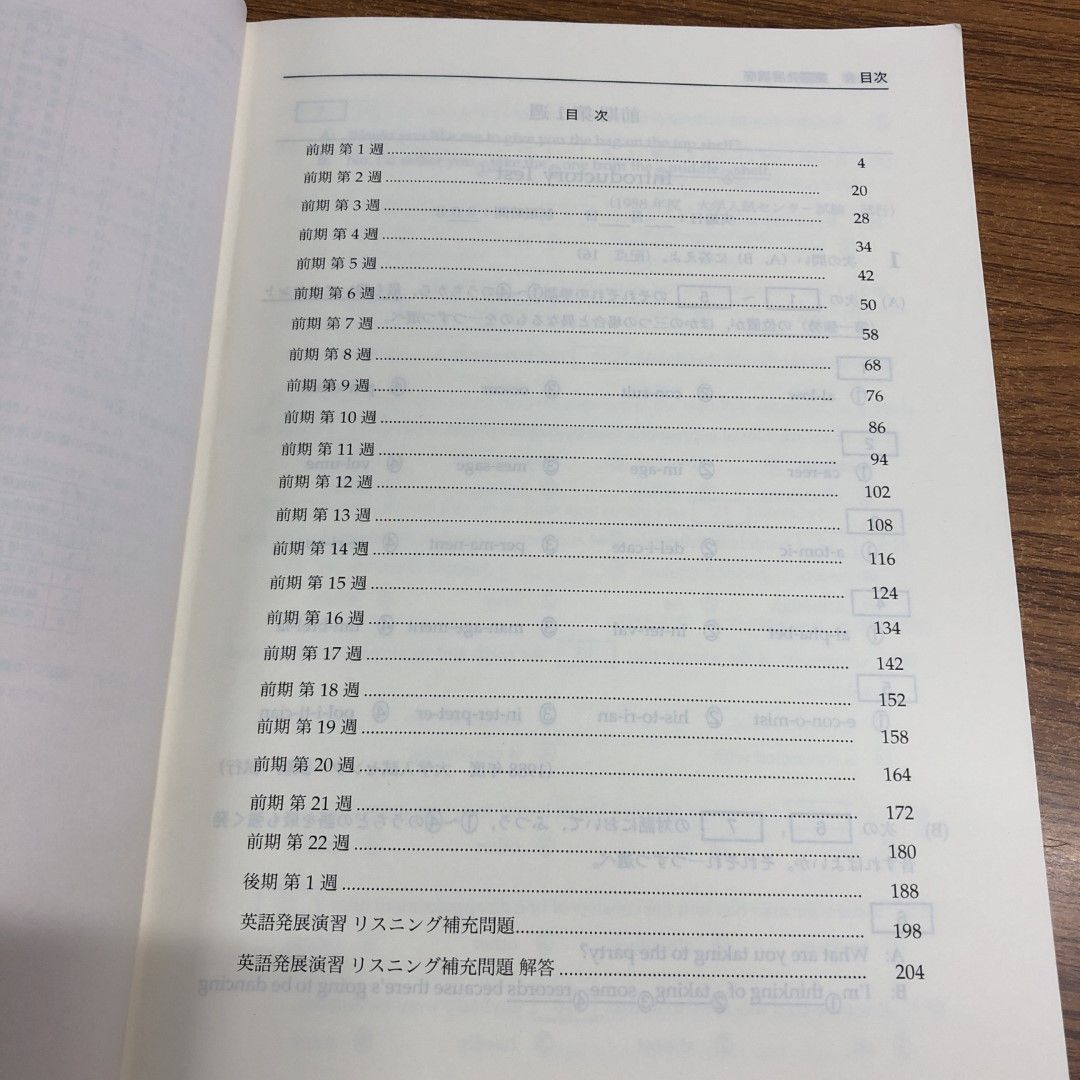 目次
目 次
前期 第 1 週 4
前期 第 2 週 20
前期 第 3 週 28
前期 第 4 週 34
前期 第 5 週 42
前期 第 6 週 50
前期 第 7 週 58
前期 第 8 週 68
前期 第 9 週 76
前期 第 10 週 86
前期 第 11 週 94
前期 第 12 週 102
前期 第 13 週 108
前期 第 14 週 116
前期 第 15 週 124
前期 第 16 週 134
前期 第 17 週 142
前期 第 18 週 152
前期 第 19 週 158
前期 第 20 週 164
前期 第 21 週 172
前期 第 22 週 180
後期 第 1 週 188
英語発展演習 リスニング補充問題 198
英語発展演習 リスニング補充問題 解答 204